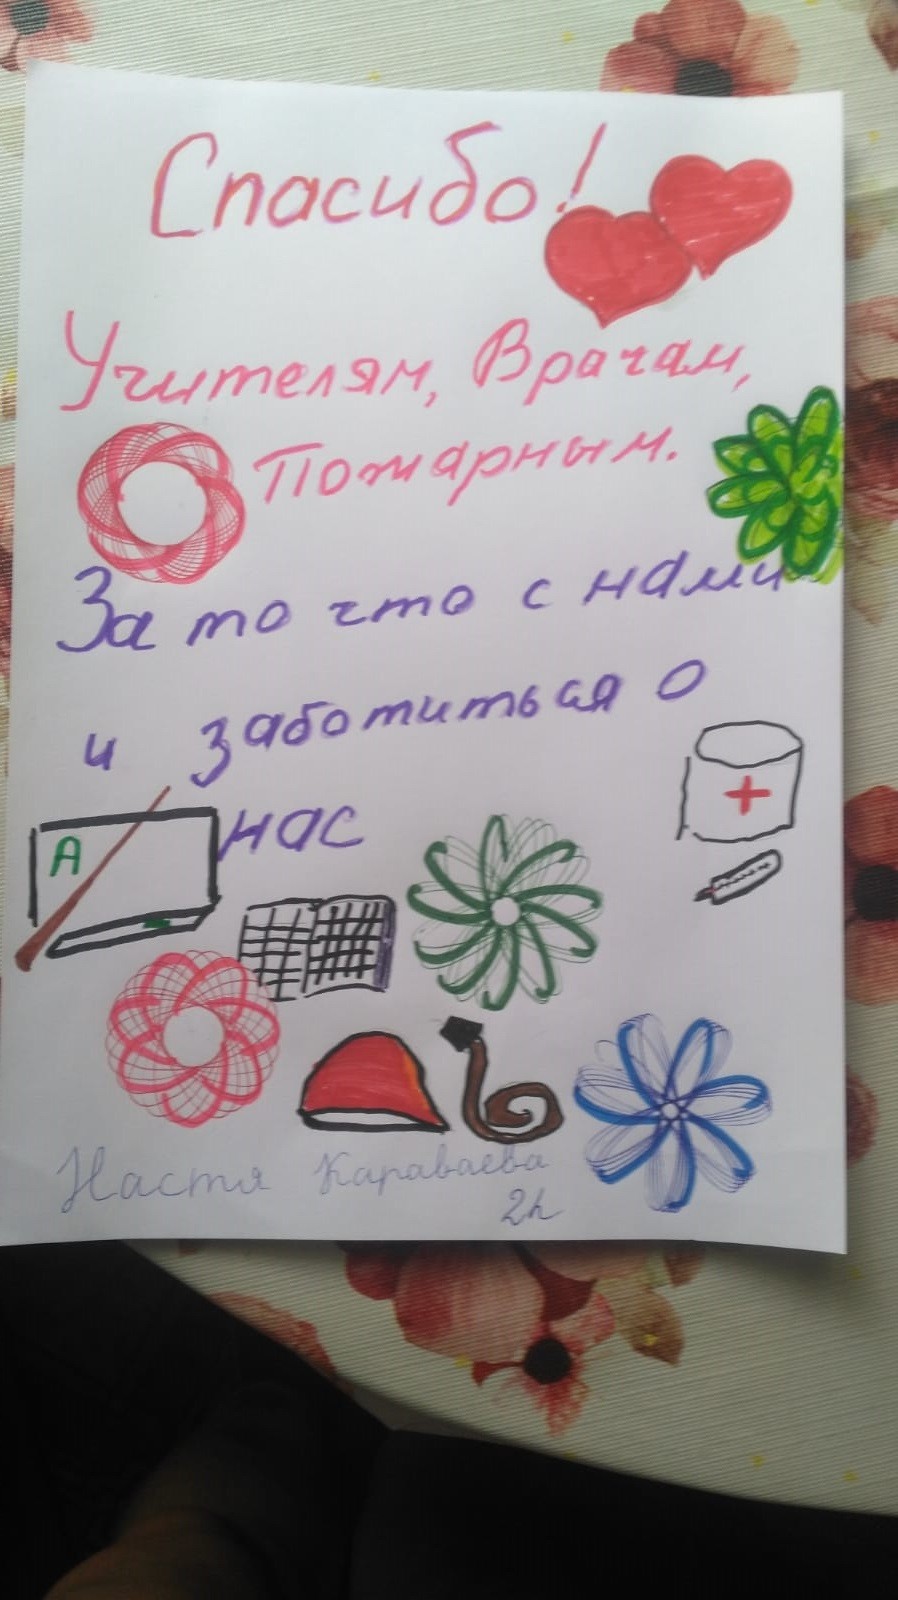 Спасибо!
Учителям, Врачам,
Пожарным.
За то что с нами
и заботиться о
нас
А
Настя Караваева
2h